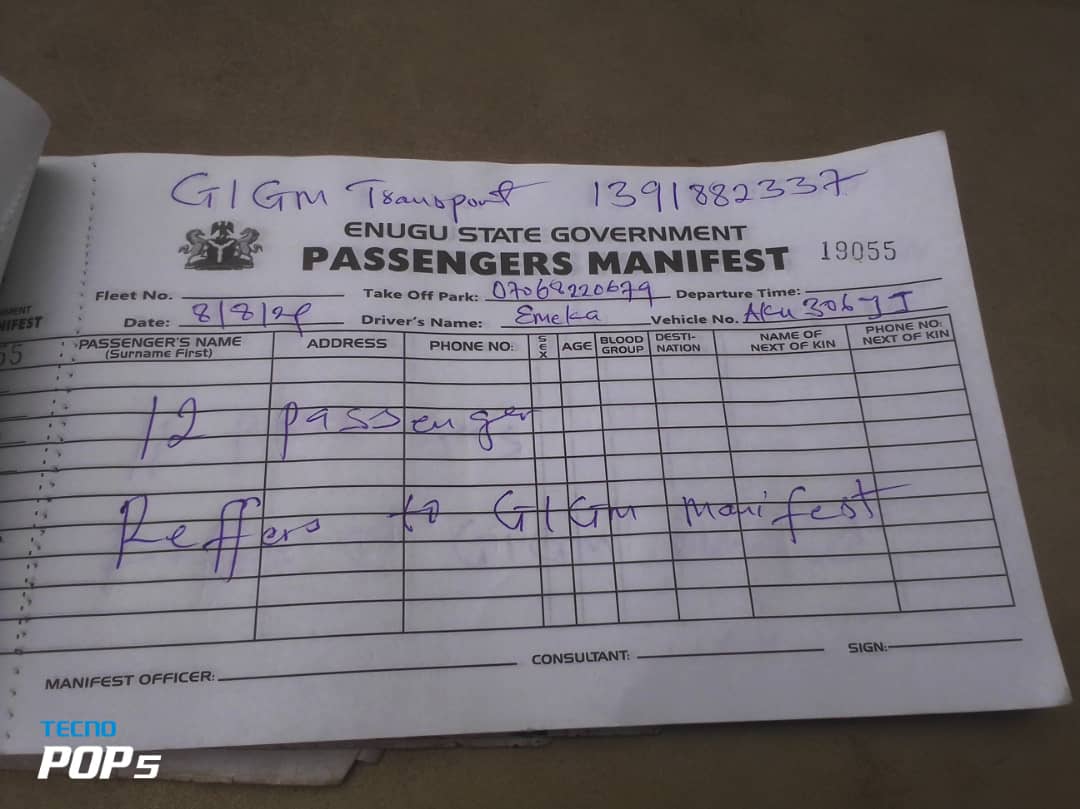 GIGM Transport 1391882337
ENUGU STATE GOVERNMENT
PASSENGERS MANIFEST 19055
Fleet No. Take Off Park: 07068220679 Departure Time:
Date: 8/8/24 Driver's Name: Emeka Vehicle No. AKU 306 YJ
PASSENGER'S NAME (Surname First) ADDRESS PHONE NO: SEX AGE BLOOD GROUP DESTI-NATION NAME OF NEXT OF KIN PHONE NO. NEXT OF KIN
12 passenger
Reffers to GIGM manifest
MANIFEST OFFICER: CONSULTANT: SIGN:
TECNO
POP 5